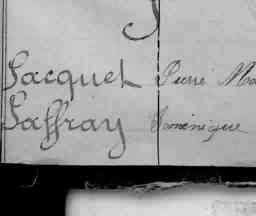 Jacquet Pierre Ma
Jaffray Dominique